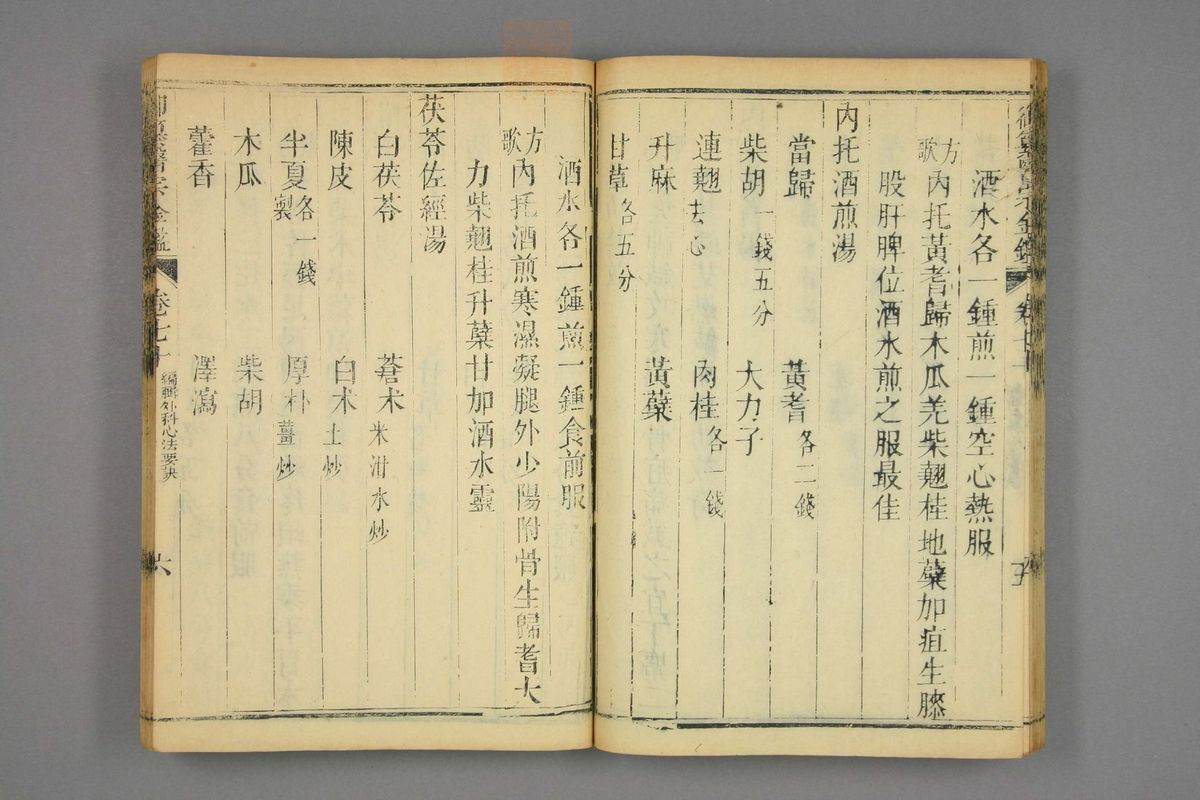 酒水各一鍾煎一鍾空心熱服
方歌 內托黃耆歸木瓜羌柴翹桂地蘗加疽生膝
股肝脾位酒水煎之服最佳
內托酒煎湯
當歸 黃耆各二錢
柴胡一錢五分 大力子
連翹去心 肉桂各一錢
升麻 黃蘗
甘草各五分
酒水各一鍾煎一鍾食前服
方歌 內托酒煎寒濕凝腿外少陽附骨生歸耆大
力柴翹桂升蘗甘加酒水靈
茯苓佐經湯
白茯苓 蒼朮米泔水炒
陳皮 白朮土炒
半夏製各一錢 厚朴薑炒
木瓜 柴胡
藿香 澤瀉
御纂醫宗金鑑 卷七十 編輯外科心法要訣 六